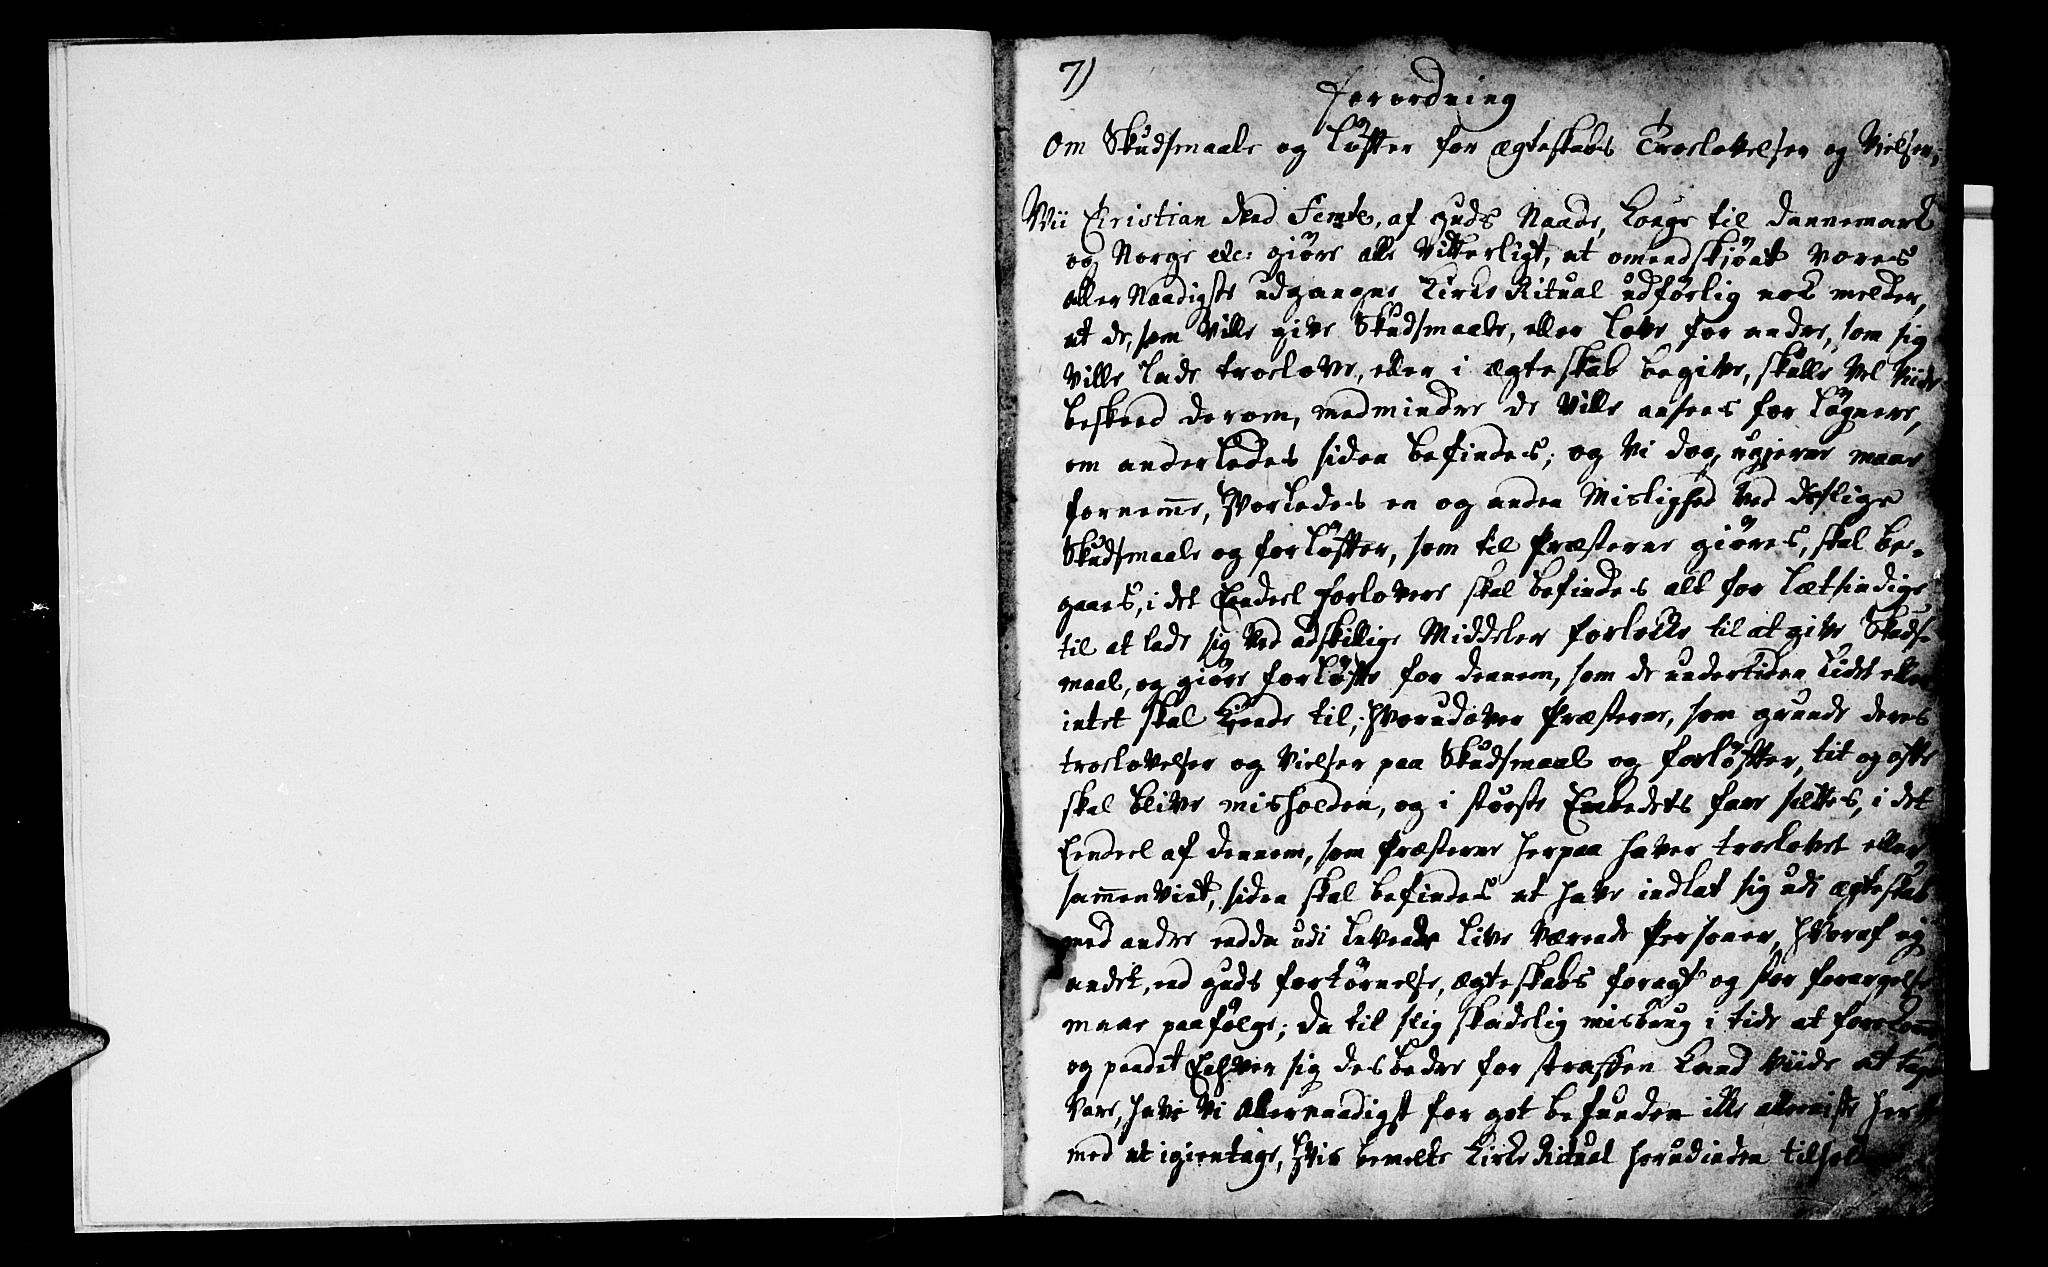 7)
Forordning
Om Skudsmaale og Løfter for ægteskabs Troelovelser og Vielser,
Wii Christian dend Femte, af Guds Naade, Konge til Dannemark
og Norge etc: giøre alle Vitterligt, at omendskjønt Vores
aller Naadigste udgangne Kirke Ritual udførlig nok melder,
at de, som Ville give Skudsmaale, eller love for andre, som sig
Ville lade troelove, eller i ægteskab begive, skulle Vel Viide
beskeed derom, medmindre de Ville ansees for Løgnere,
om anderledes siden befindes; og Vi dog ugjerne maae
fornem̅e, Hvorledes en og anden Mislighed Ved deslige
Skudsmaale og forløfter, som til Præsterne giøres, skal be-
gaaes, i det Eendeel forlovere skal befindes alt for Letsindige
til at lade sig Ved adskillige Middeler forlocke til at give Skuds-
maal, og giøre forløfte for dennem, som de undertiden Lidet eller
intet skal kiende til, Hvorudover Præsterne, som grunde deres
troelovelser og Vielser paa Skudsmaal og forløfter, tit og ofte
skal blive misholden, og i største Embedets fare settes, i det
Eendeel af dennem, som Præsterne herpaa haver troelovet eller
sam̅enviet, siden skal befindes at have indlat sig udi ægteskab
med andre endda udi Levende Live Værende Personer, Hvoraf ej
andet, end Guds fortørnelse, ægteskabs foragt og stor forargelse
maae paafølge; Da til slig skadelig misbrug i tide at forekom̅e,
og paadet Enhver sig desbedre for straffen kand Viide at tage
Vare, have Vi Allernaadigst for got befunden ikke alleniste her
med at igientage, Hvis bemelte Kirke Ritual herudinden tilholder